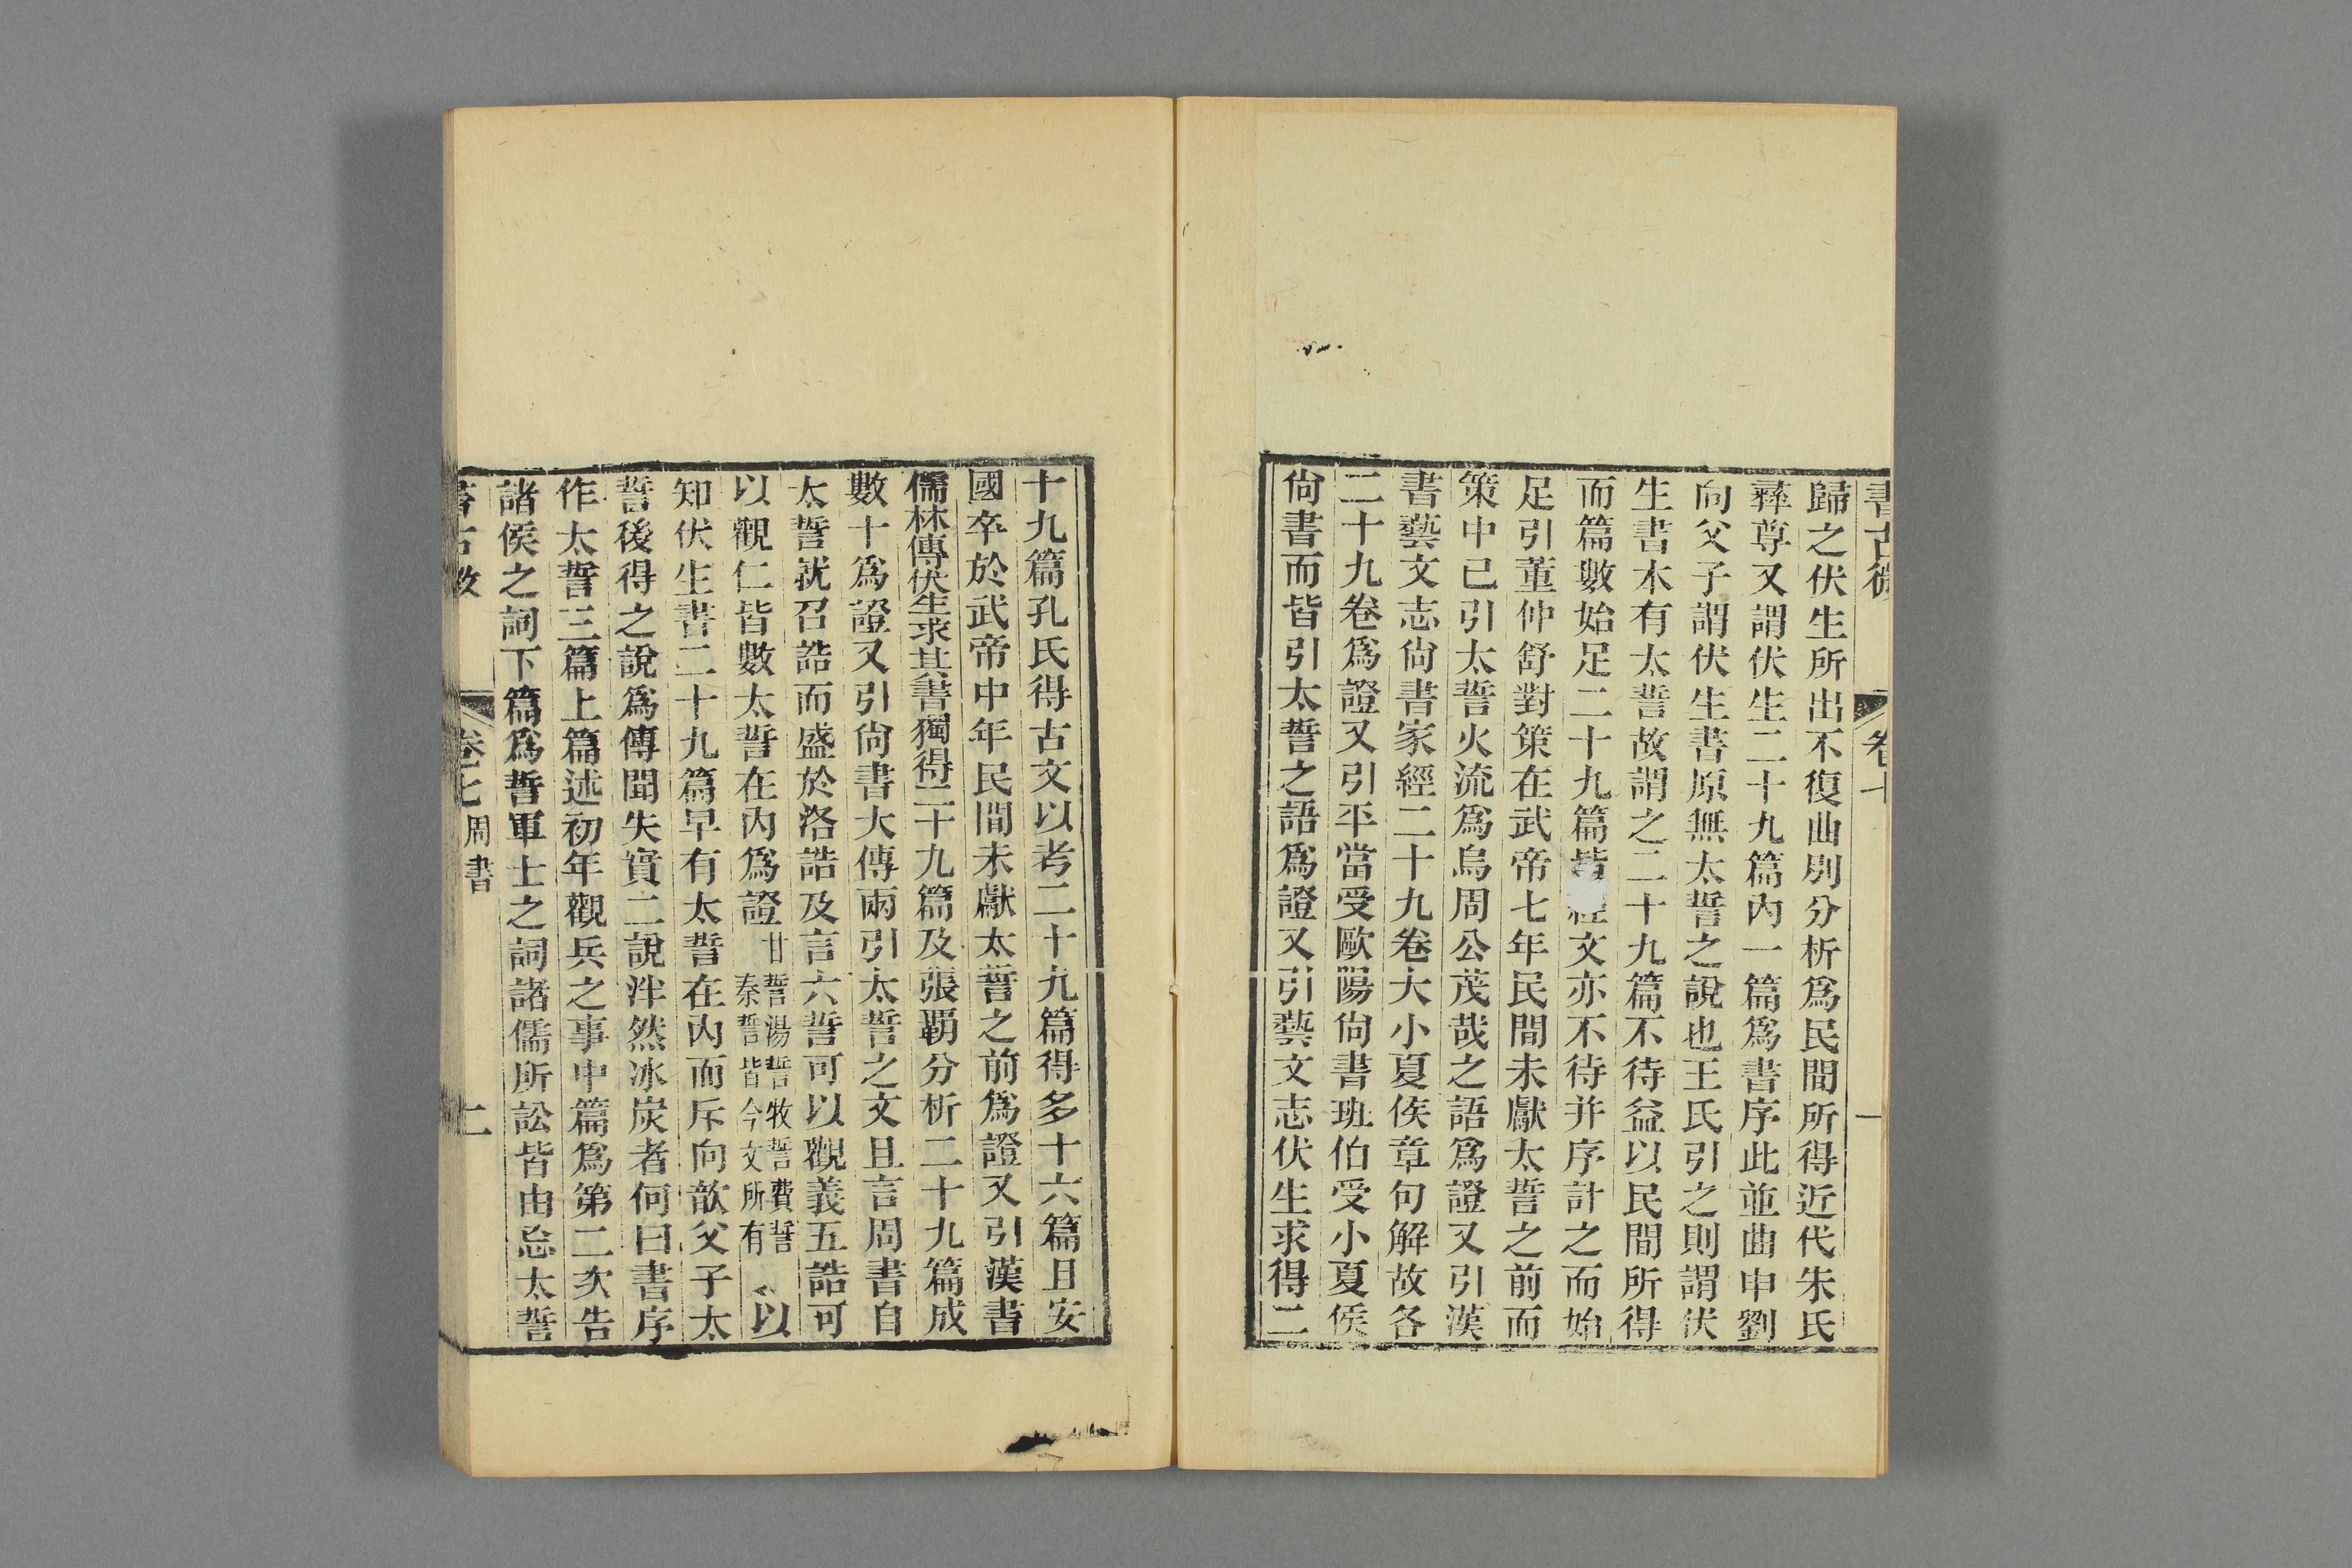 書古微
卷七
一
歸之伏生所出不復曲別分析爲民間所得近代朱氏
彝尊又謂伏生二十九篇內一篇爲書序此並曲申劉
向父子謂伏生書原無太誓之說也王氏引之則謂伏
生書本有太誓故謂之二十九篇不待益以民間所得
而篇數始足二十九篇皆經文亦不待并序計之而始
足引董仲舒對策在武帝七年民間未獻太誓之前而
策中已引太誓火流爲烏周公茂哉之語爲證又引漢
書藝文志尙書家經二十九卷大小夏侯章句解故各
二十九卷爲證又引平當受歐陽尙書班伯受小夏侯
尙書而皆引太誓之語爲證又引藝文志伏生求得二
十九篇孔氏得古文以考二十九篇得多十六篇且安
國卒於武帝中年民間未獻太誓之前爲證又引漢書
儒林傳伏生求其書獨得二十九篇及張霸分析二十九篇成
數十爲證又引尙書大傳兩引太誓之文且言周書自
太誓就召誥而盛於洛誥及言六誓可以觀義五誥可
以觀仁皆數太誓在內爲證甘誓湯誓牧誓費誓秦誓皆今文所有以
知伏生書二十九篇早有太誓在內而斥向歆父子太
誓後得之說爲傳聞失實二說泮然冰炭者何曰書序
作太誓三篇上篇述初年觀兵之事中篇爲第二次告
諸侯之詞下篇爲誓軍士之詞諸儒所訟皆由忘太誓
書古微
卷七周書
二